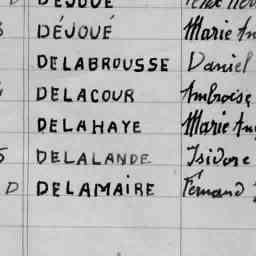 DÉJOUÉ Marie
DELABROUSSE Daniel
DELACOUR Ambroise
DELAHAYE Marie
5 DELALANDE Isidore
D DELAMAIRE Fernand